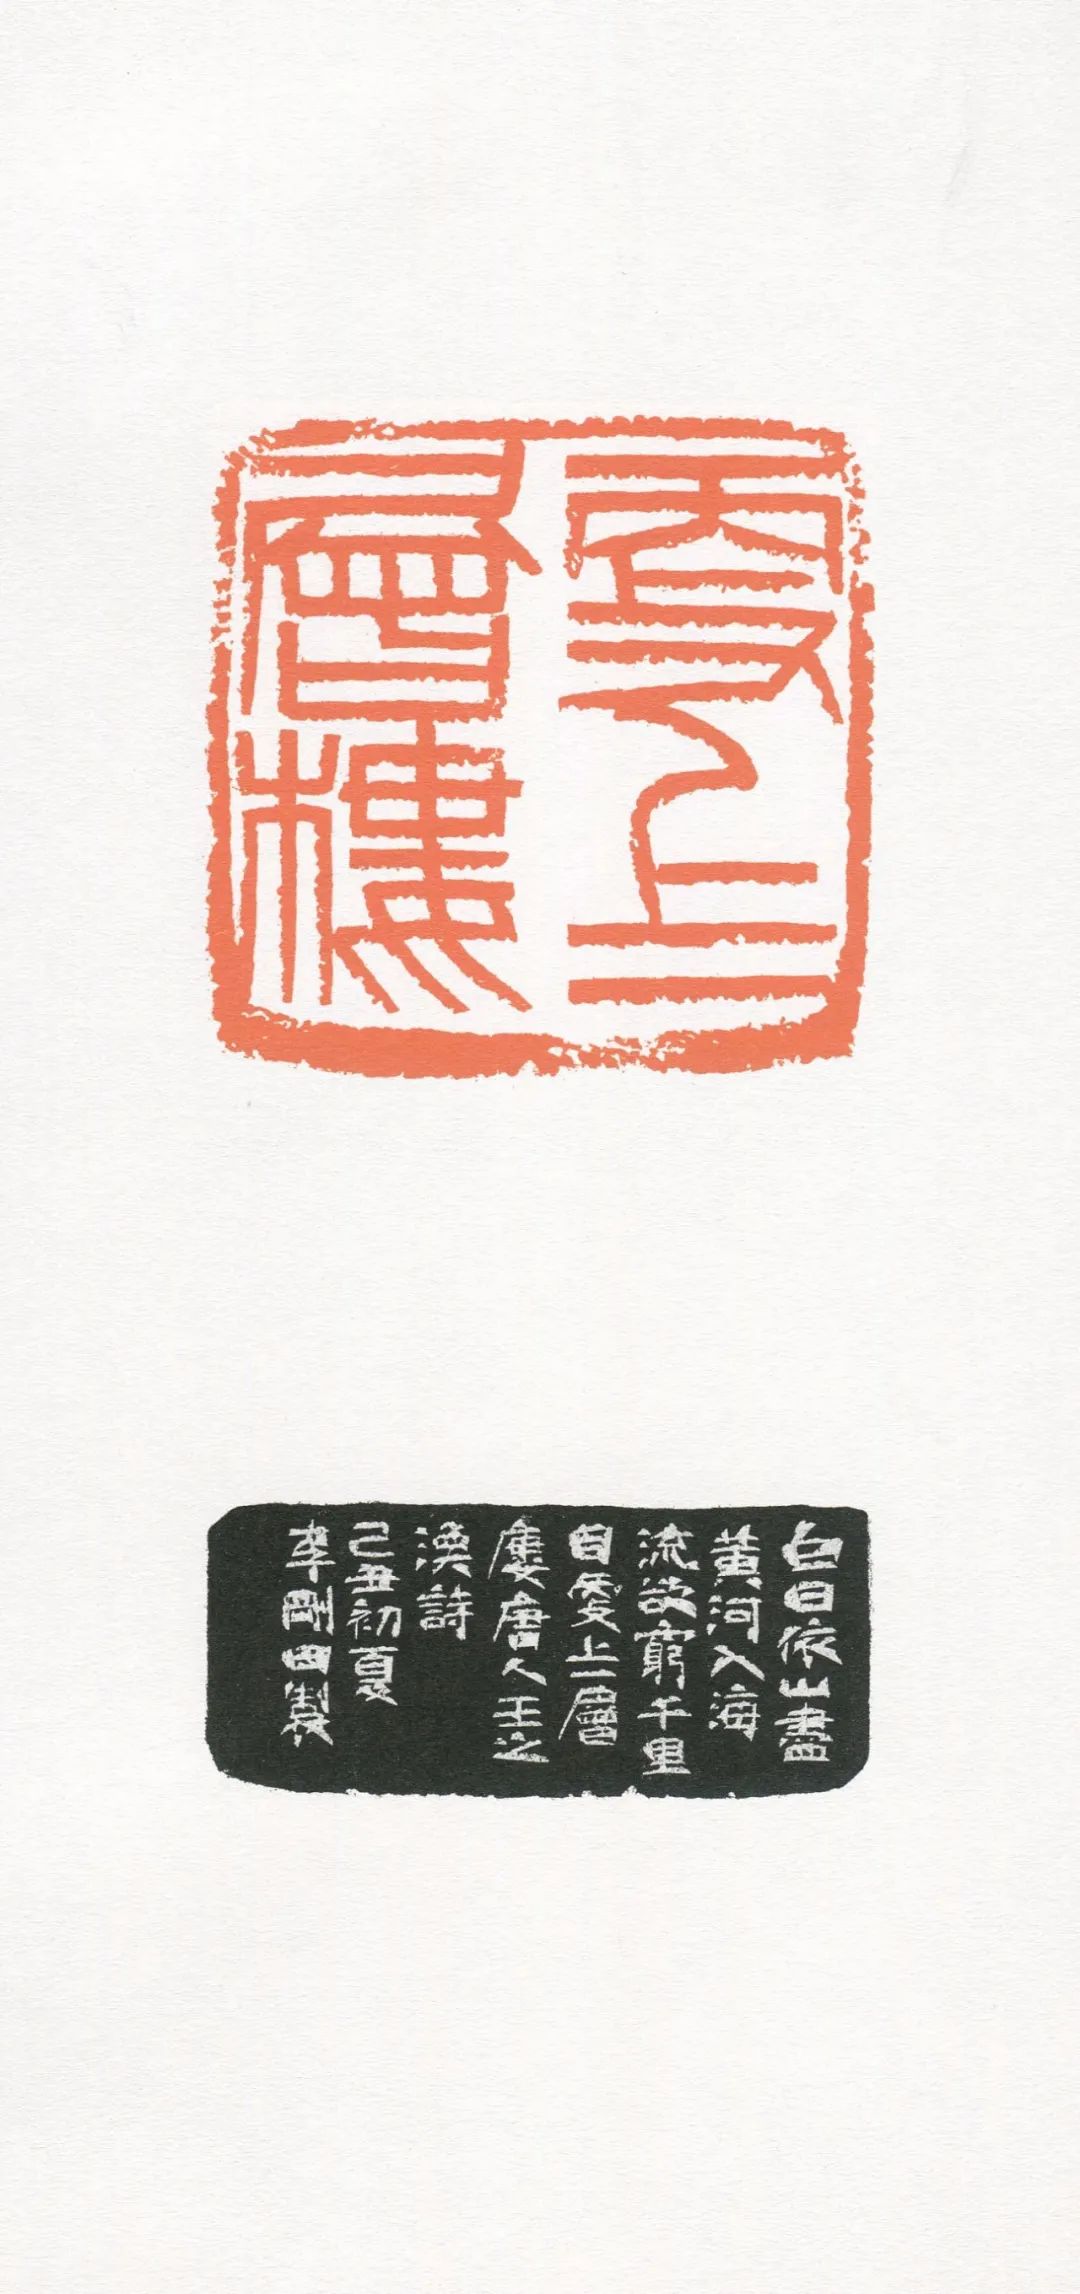 更上一
層樓
白日依山盡
黃河入海
流欲窮千里
目更上一層
廔唐人王之
渙詩
己丑初夏
李剛田製